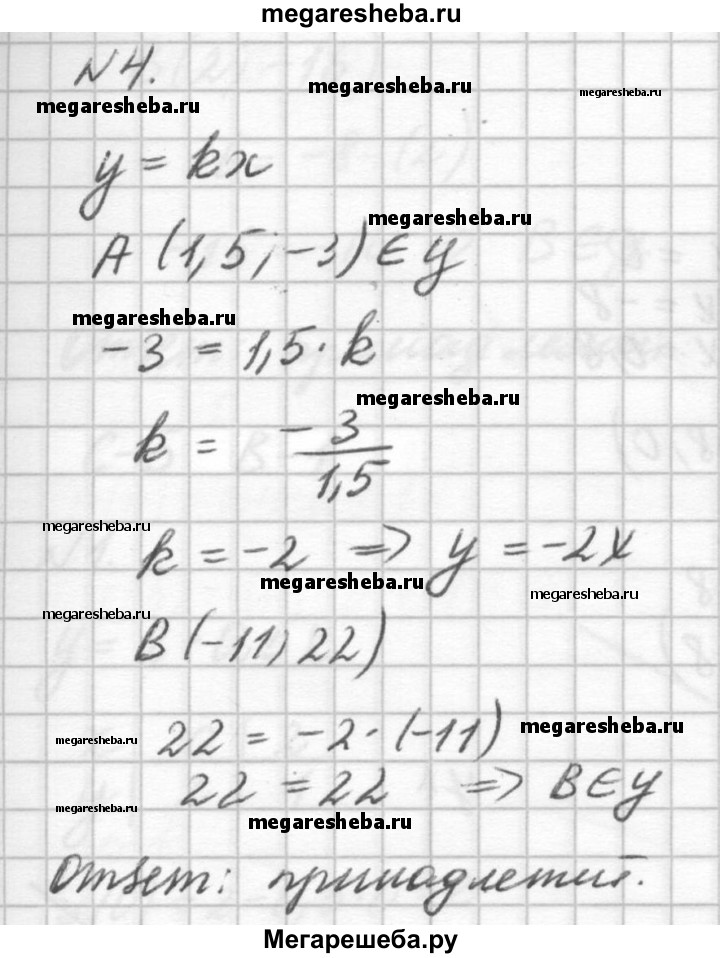 megaresheba.ru
N4.
megaresheba.ru
megaresheba.ru
megaresheba.ru
y = kx
megaresheba.ru
A (1,5; -3) ∈ y
megaresheba.ru
-3 = 1,5 · k
megaresheba.ru
k = -3/1,5
megaresheba.ru
k = -2 => y = -2x
megaresheba.ru
megaresheba.ru
megaresheba.ru
B (-11; 22)
megaresheba.ru
22 = -2 · (-11)
megaresheba.ru
22 = 22 => B ∈ y
megaresheba.ru
megaresheba.ru
Ответ: принадлежит.
Мегарешеба.ру